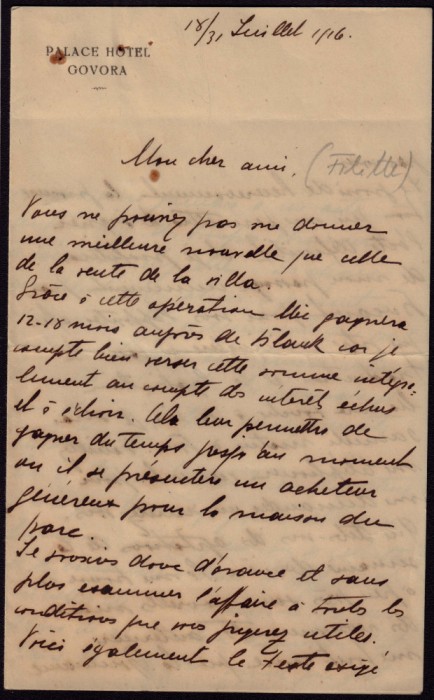 PALACE HÔTEL
GOVORA
18/31 Juillet 1916.
Mon cher ami, (Filitti)
Vous ne pouviez pas me donner
une meilleure nouvelle que celle
de la vente de la villa.
Grâce à cette opération gagnera
12-18 mois auprès de car je
compte bien verser cette somme intégra-
lement au compte des intérêts échus
et à échoir. Cela leur permettra de
gagner du temps jusqu'au moment
où il se présentera un acheteur
généreux pour la maison du
parc.
Je souscris donc d'avance et sans
plus examiner l'affaire à toutes les
conditions que vous jugerez utiles.
Voici également le texte exigé